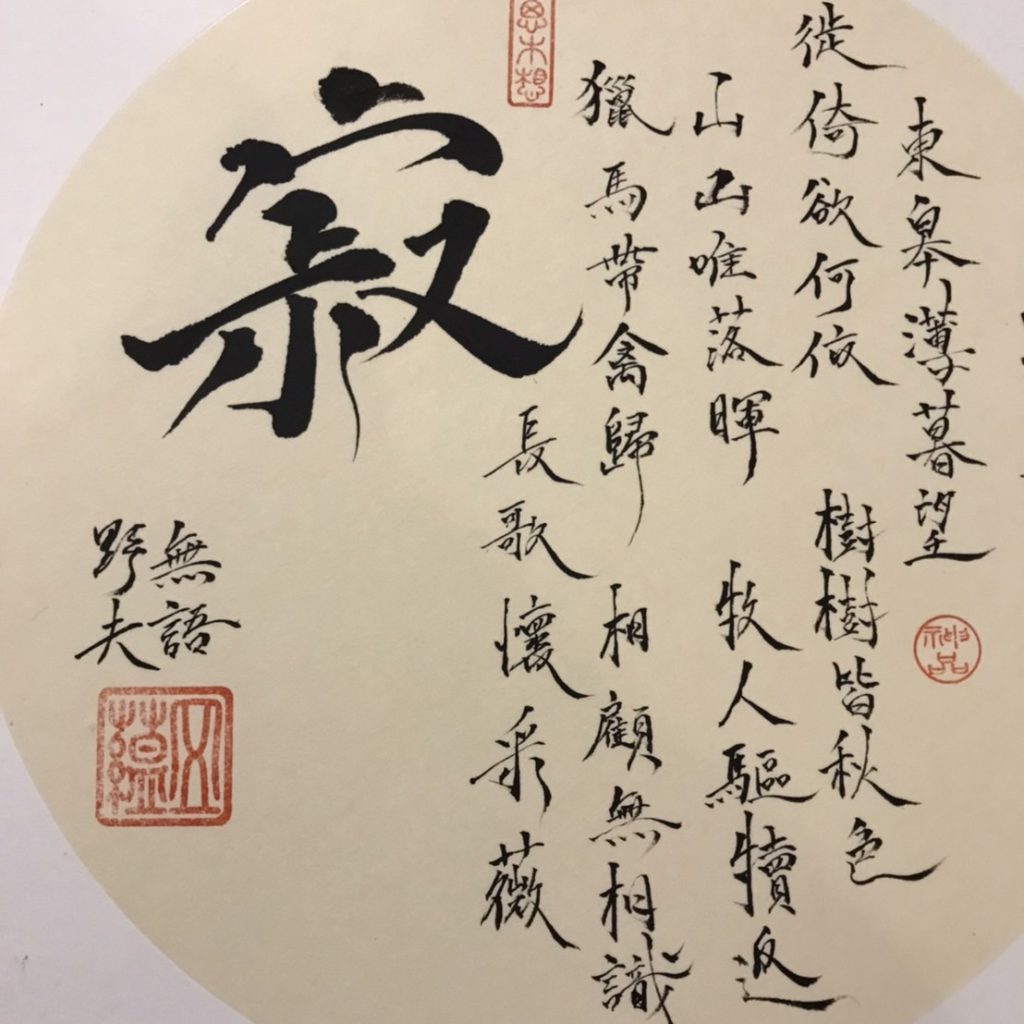 東皋薄暮望
神品
徙倚欲何依 樹樹皆秋色
山山唯落暉 牧人驅犢返
獵馬帶禽歸 相顧無相識
長歌懷采薇
寂
無語
野夫
五蘊